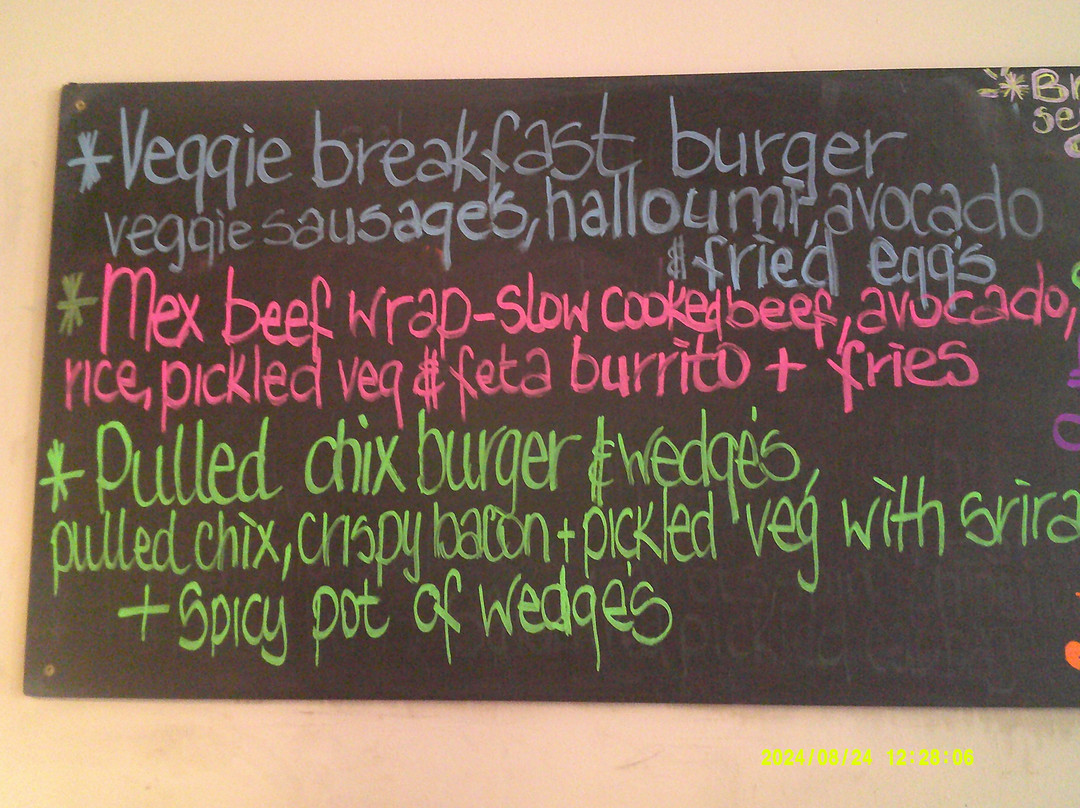 *Veggie breakfast burger
veggie sausage's, halloumi, avocado
& fried egg's
*Mex beef wrap-slow cooked beef, avocado,
rice, pickled veg & feta burrito + fries
*Pulled chix burger & wedge's,
pulled chix, crispy bacon + pickled veg with srira
+ spicy pot of wedge's
*Br
se
2024/08/24 12:28:06